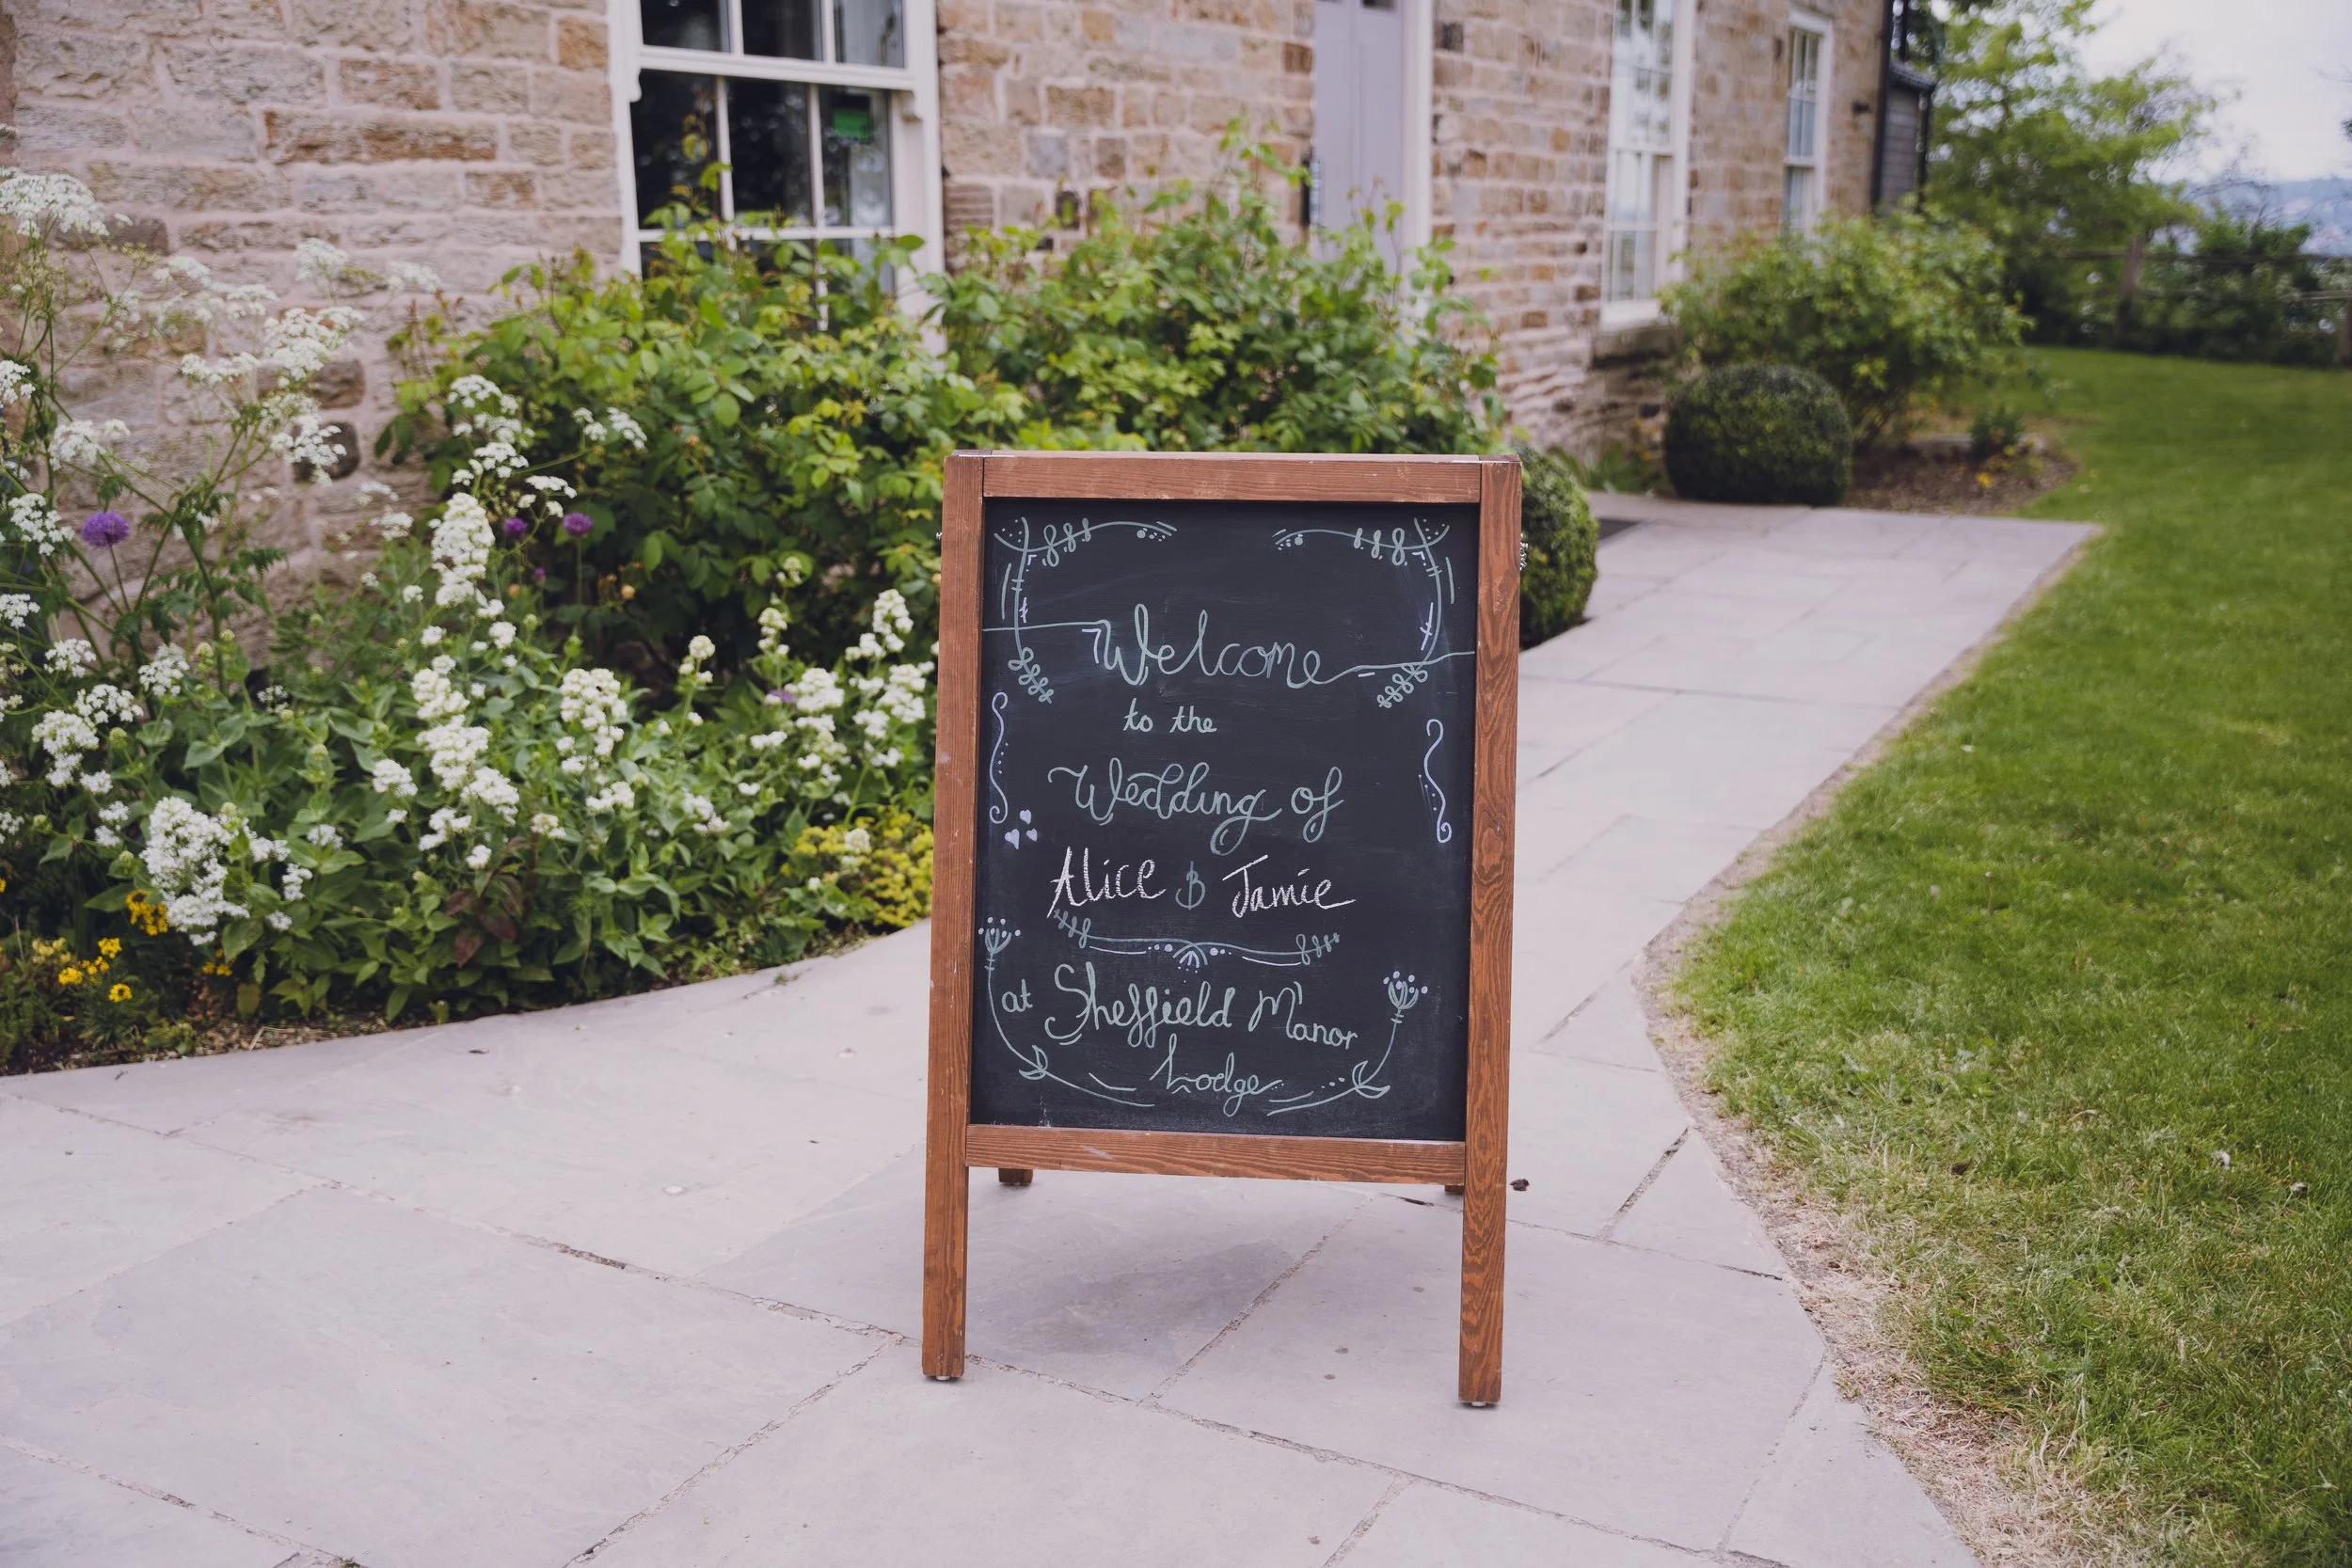 Welcome
to the
Wedding of
Alice & Jamie
at Sheffield Manor
Lodge